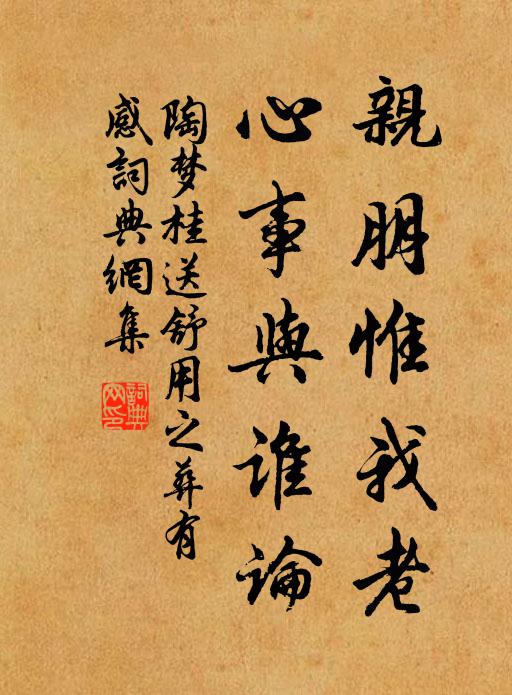 親朋惟我老
心事與誰論
陶梦桂送舒用之葬有
感詞典網集
詞典
网印